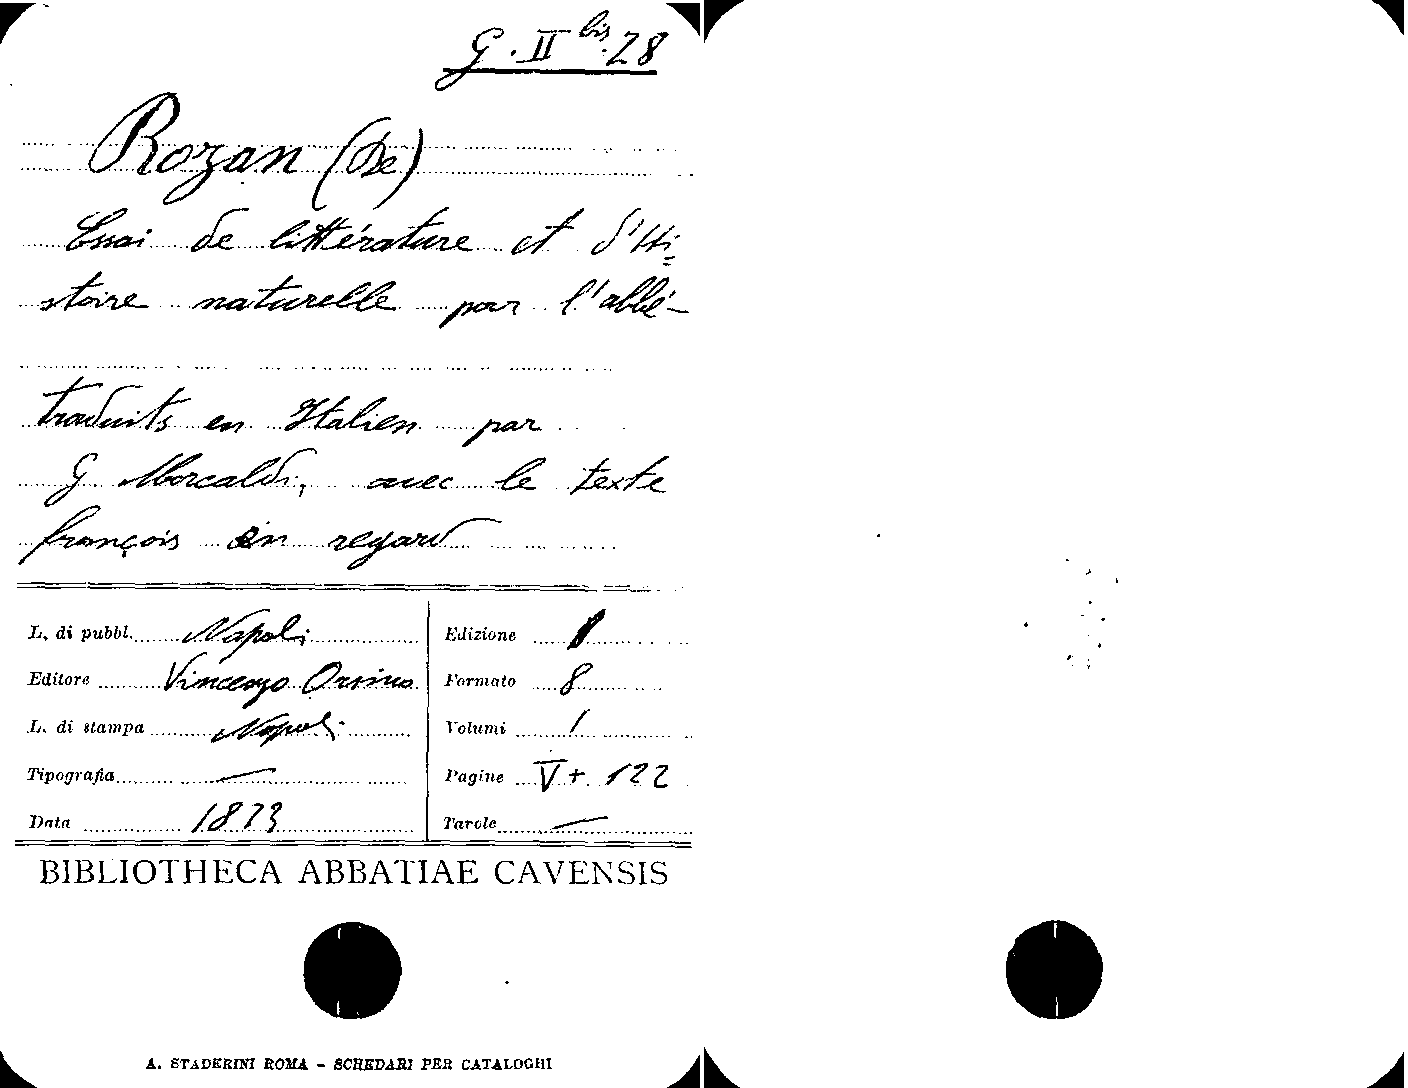 G. II bis. 28
Rozan (De)
Essai de littérature et d'Hi=
stoire naturelle par l'abbé —
traduits en Italien par
G. Morcaldi, avec le texte
françois en regard
L. di pubbl. Napoli
Editore Vincenzo Orsino
L. di stampa Napoli
Tipografia —
Data 1873
Edizione
Formato 8
Volumi 1
Pagine V + 122
Tavole —
BIBLIOTHECA ABBATIAE CAVENSIS
A. STADERINI ROMA - SCHEDARI PER CATALOGHI